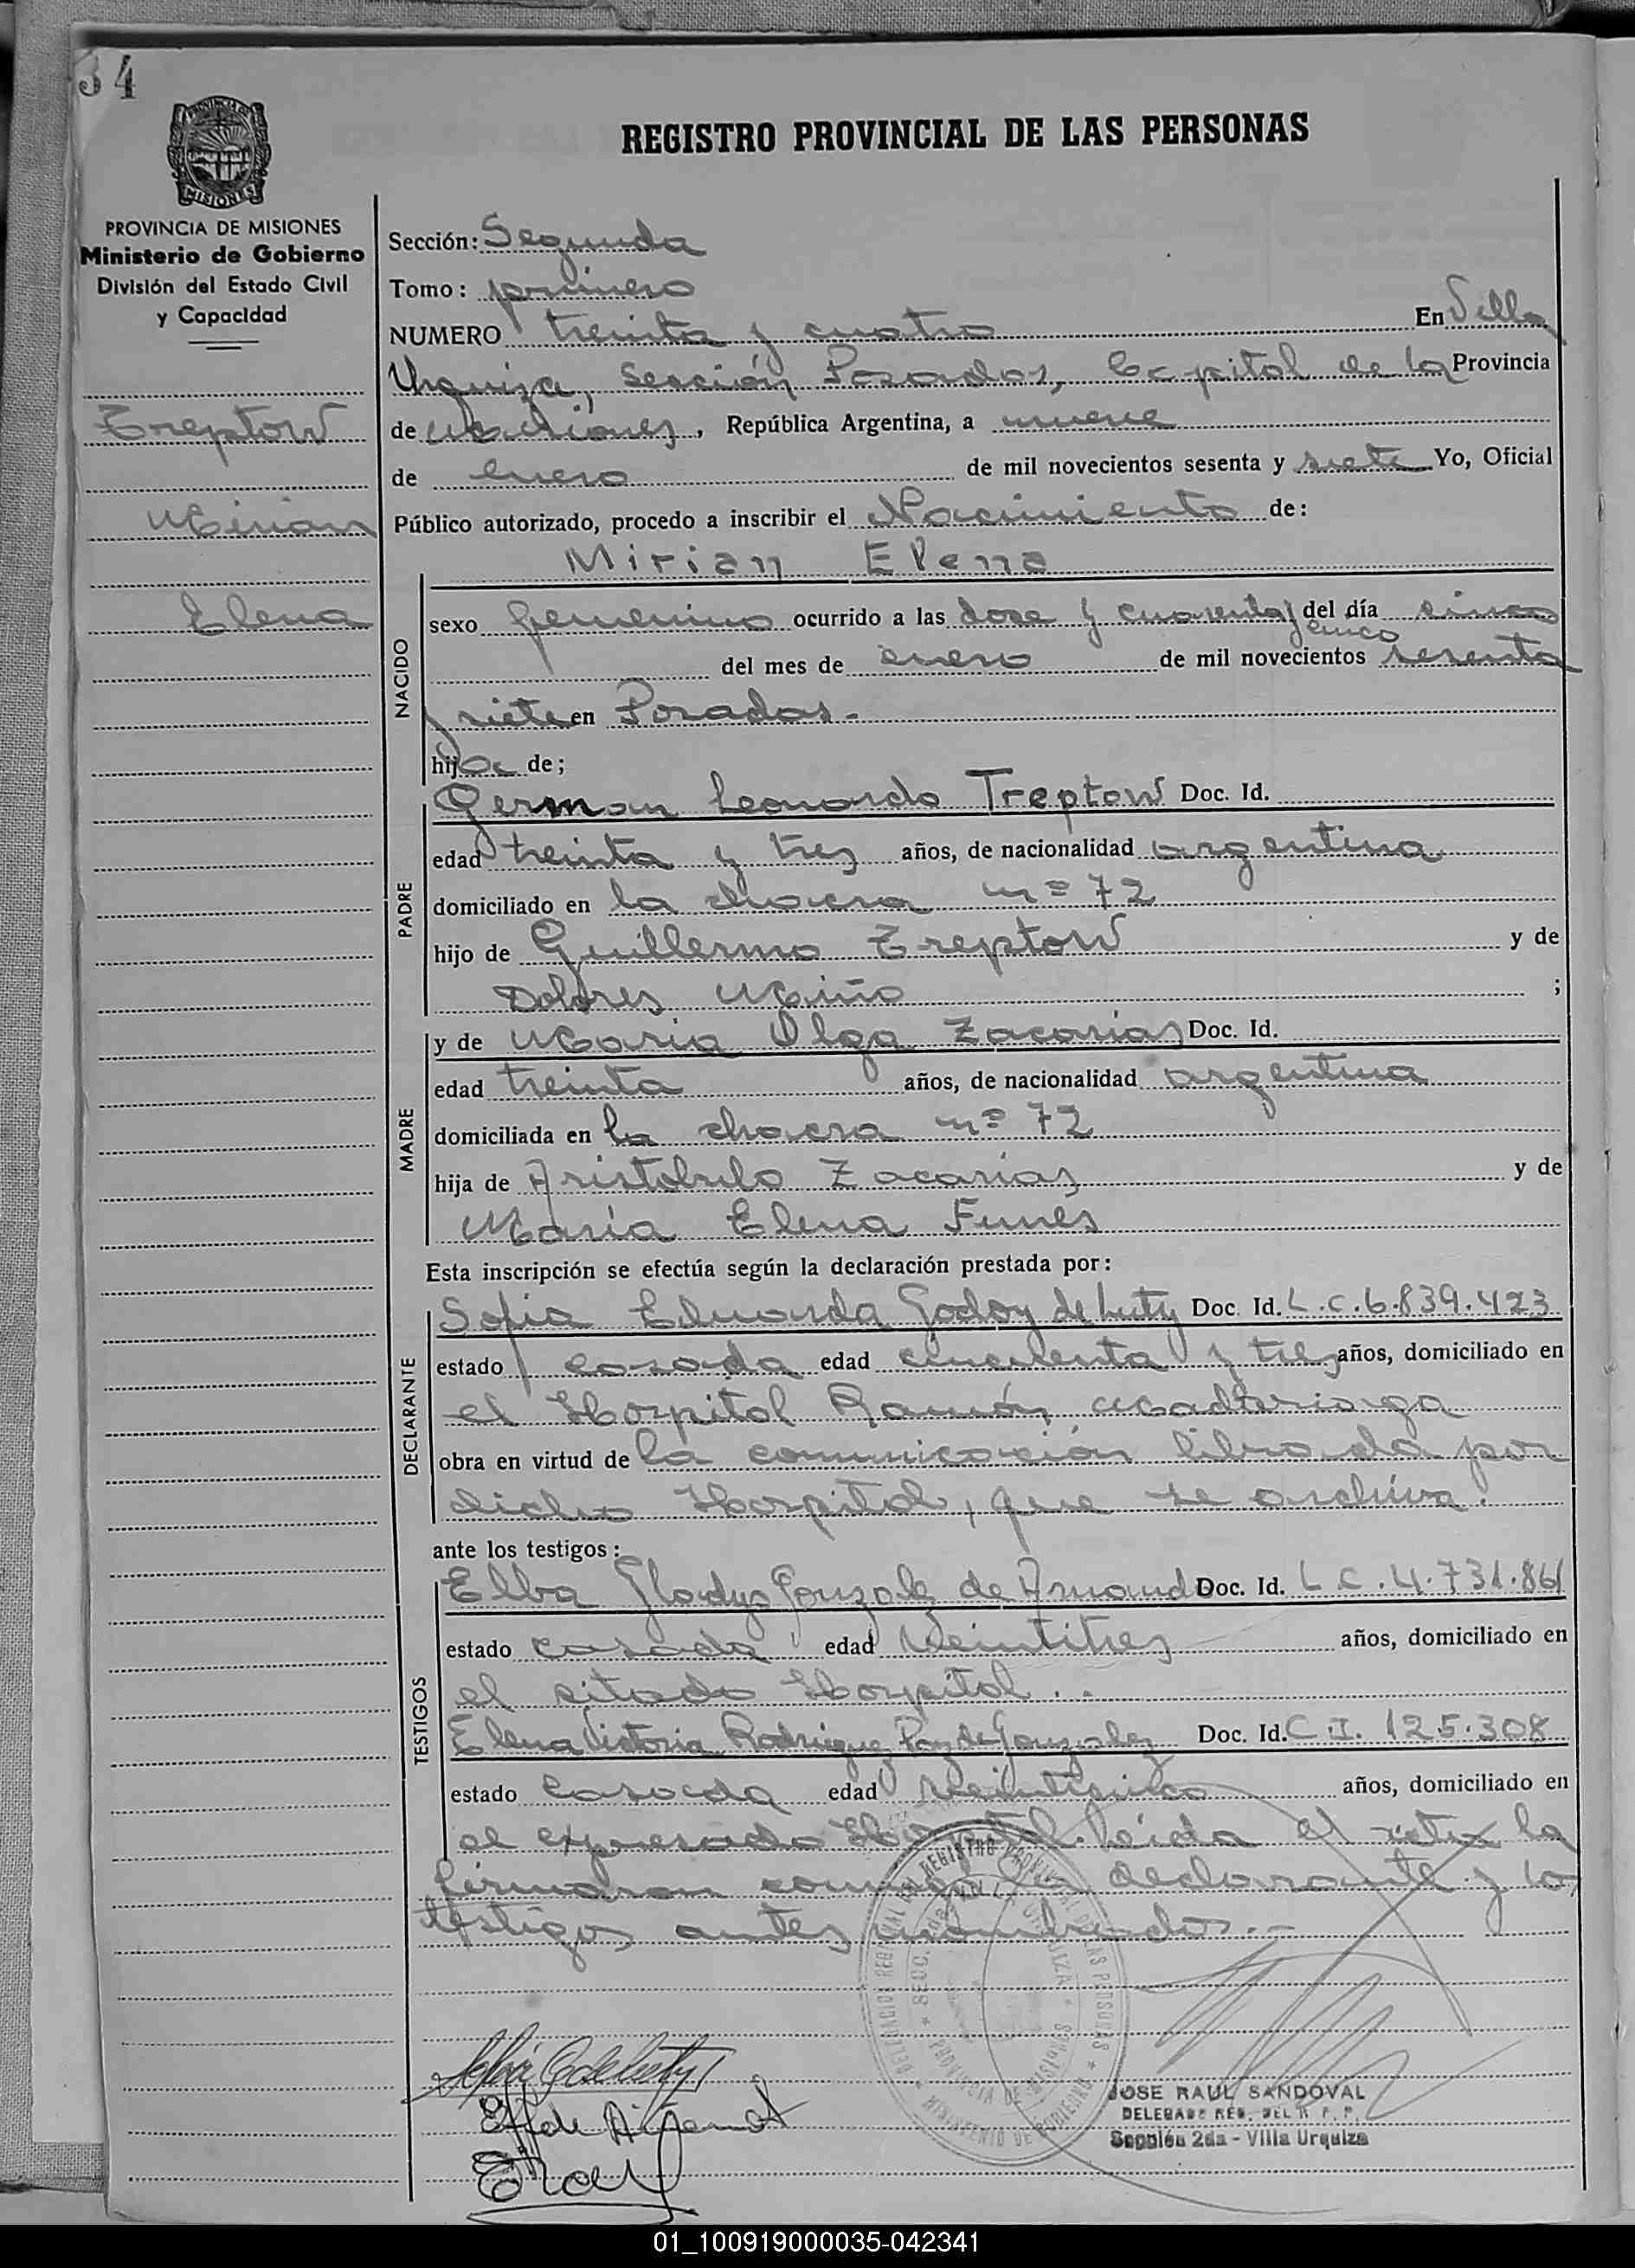 34
REGISTRO PROVINCIAL DE LAS PERSONAS
PROVINCIA DE MISIONES
Ministerio de Gobierno
División del Estado Civil
y Capacidad
Treptow
Mirian
Elena
Sección: Segunda
Tomo: primero
NUMERO treinta y cuatro En Villa
Urquiza, Sección Posadas, Capital de la Provincia
de Misiones, República Argentina, a nueve
de enero de mil novecientos sesenta y siete Yo, Oficial
Público autorizado, procedo a inscribir el Nacimiento de:
Mirian Elena
NACIDO
sexo femenino ocurrido a las doce y cuarenta y del día cinco
cinco
del mes de enero de mil novecientos sesenta
y siete en Posadas.-
hija de;
PADRE
German Leonardo Treptow Doc. Id.
edad treinta y tres años, de nacionalidad argentina
domiciliado en la chacra nº 72
hijo de Guillermo Treptow y de
Dolores Miño ;
MADRE
y de Maria Olga Zacarias Doc. Id.
edad treinta años, de nacionalidad argentina
domiciliada en la chacra nº 72
hija de Aristobulo Zacarias y de
María Elena Funes
Esta inscripción se efectúa según la declaración prestada por:
DECLARANTE
Sofia Eduarda Godoy de Luty Doc. Id. L.C.6.839.423
estado casada edad cincuenta y tres años, domiciliado en
el Hospital Ramón Madariaga
obra en virtud de la comunicación librada por
dicho Hospital, que se archiva.
ante los testigos:
TESTIGOS
Elba Gladys Gonzalez de Doc. Id. L.C.4.731.861
estado casada edad veintitres años, domiciliado en
el citado Hospital..
Elena Victoria Rodriguez de Gonzalez Doc. Id. C.I. 125.308
estado casada edad veinticinco años, domiciliado en
el expresado Hospital. Leída el acta la
firmaron conmigo declarante y los
testigos antes nombrados.-
DELEGACION REGIONAL DEL REGISTRO PROVINCIAL DE LAS PERSONAS
MINISTERIO DE GOBIERNO
SECC. 2da. VILLA URQUIZA
PROVINCIA DE MISIONES
JOSE RAUL SANDOVAL
DELEGADO REG. DEL R. P. P.
Sección 2da - Villa Urquiza
01_100919000035-042341